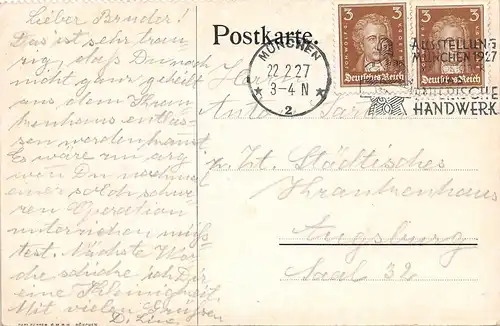 Lieber Bruder!
Das ist sehr trau-
rig, daß Du noch
nicht ganz geheilt
aus dem Kran
kenhaus entlas-
sen werden kannst.
Es wäre zu arg
wen Du noch mal
einer solch schwe
ren Operation
unterziehen müß
test. Nächste Wo-
che schicke ich Dir
eine Kleinigkeit.
Mit vielen Grüssen
D. Lina.
Postkarte.
MÜNCHEN
22.2.27
3-4 N
2
3 3
Deutsches Reich
Deutsches Reich
AUSSTELLUNG
MÜNCHEN 1927
BAYERISCHE
HANDWERK
Herrn
Anton
z. Zt. Städtisches
Krankenhaus
Augsburg
Saal 32
MÜNCHEN